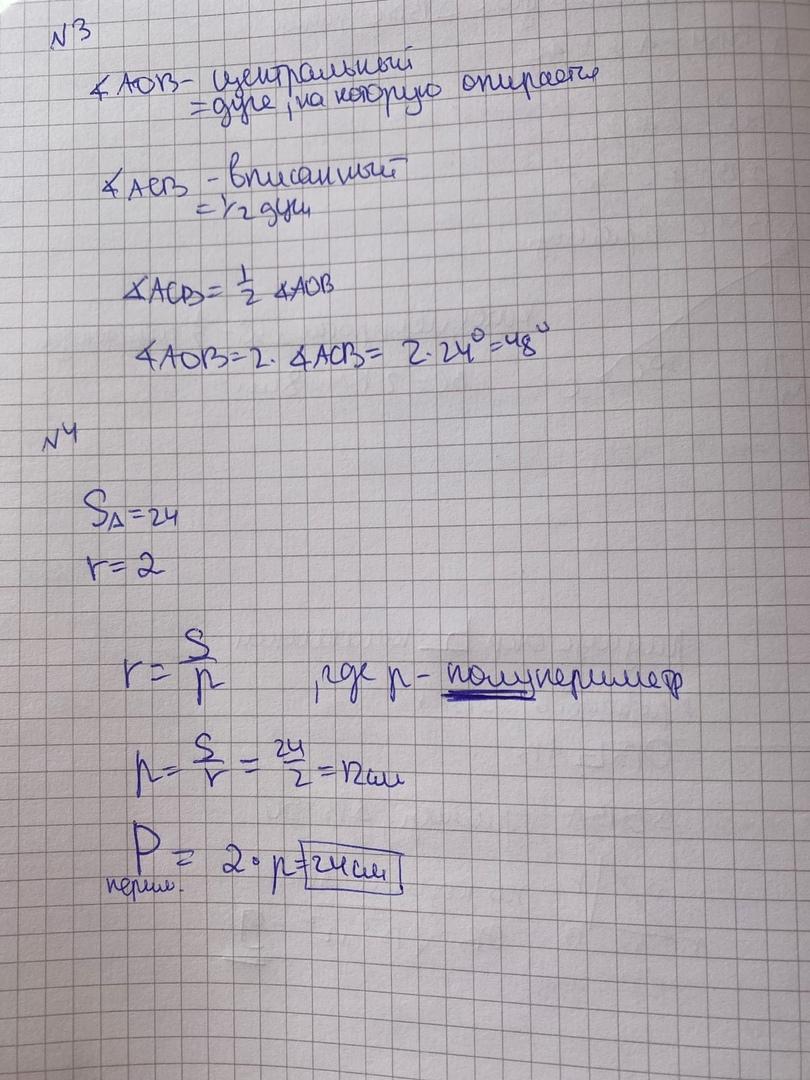 N3
∢AOB - центральный
= дуге, на которую опирается
∢ACB - вписанный
= 1/2 дуги
∢ACB = 1/2 ∢AOB
∢AOB = 2 · ∢ACB = 2 · 24° = 48°
N4
S△ = 24
r = 2
r = S/p , где p - полупериметр
p = S/r = 24/2 = 12 см
P = 2 · p = 24 см
перим.